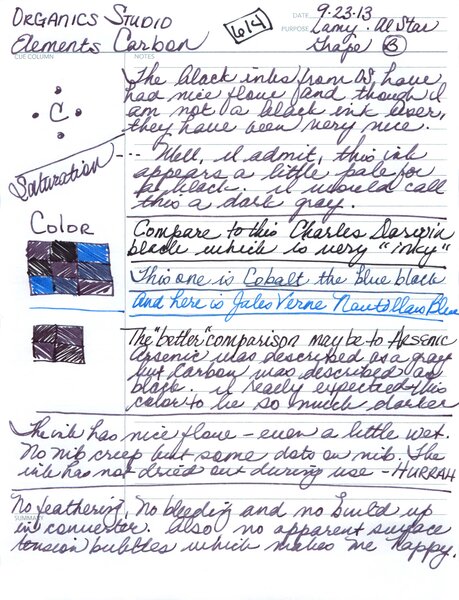 ORGANICS STUDIO
Elements Carbon
614
DATE 9-23-13
PURPOSE Lamy - Al Star
Grape B
CUE COLUMN
NOTES
C
The black inks from OS have
had nice flow and though I
am not a black ink user,
they have been very nice.
Saturation
--- Well, I admit, this ink
appears a little pale for
a black. I would call
this a dark gray.
Color
Compare to this Charles Darwin
black which is very "inky"
This one is Cobalt the blue black
And here is Jules Verne Nautilaus Blue
The "better" comparison may be to Arsenic
Arsenic was described as a gray
but Carbon was described as
black. I really expected this
color to be so much darker
The ink has nice flow - even a little wet.
No nib creep but some dots on nib. The
ink has not dried out during use - HURRAH
No feathering, No bleeding and no build up
SUMMARY
in converter. Also no apparent surface
tension bubbles which makes me happy.